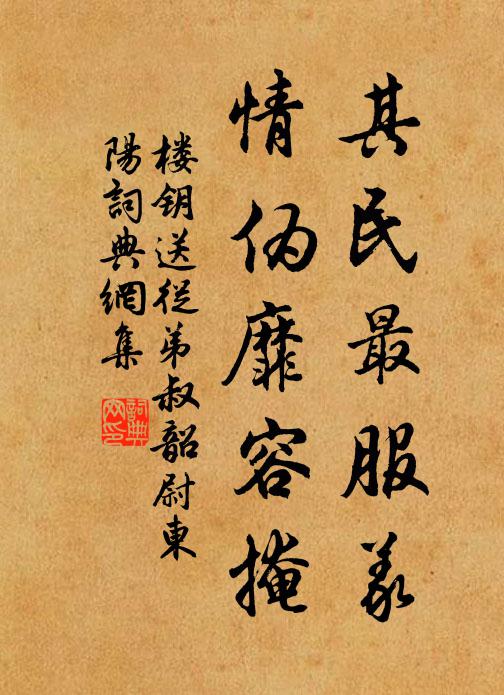 其民最服義
情偽靡容掩
楼钥送從弟叔韶尉東
陽詞典網集
詞典
網印